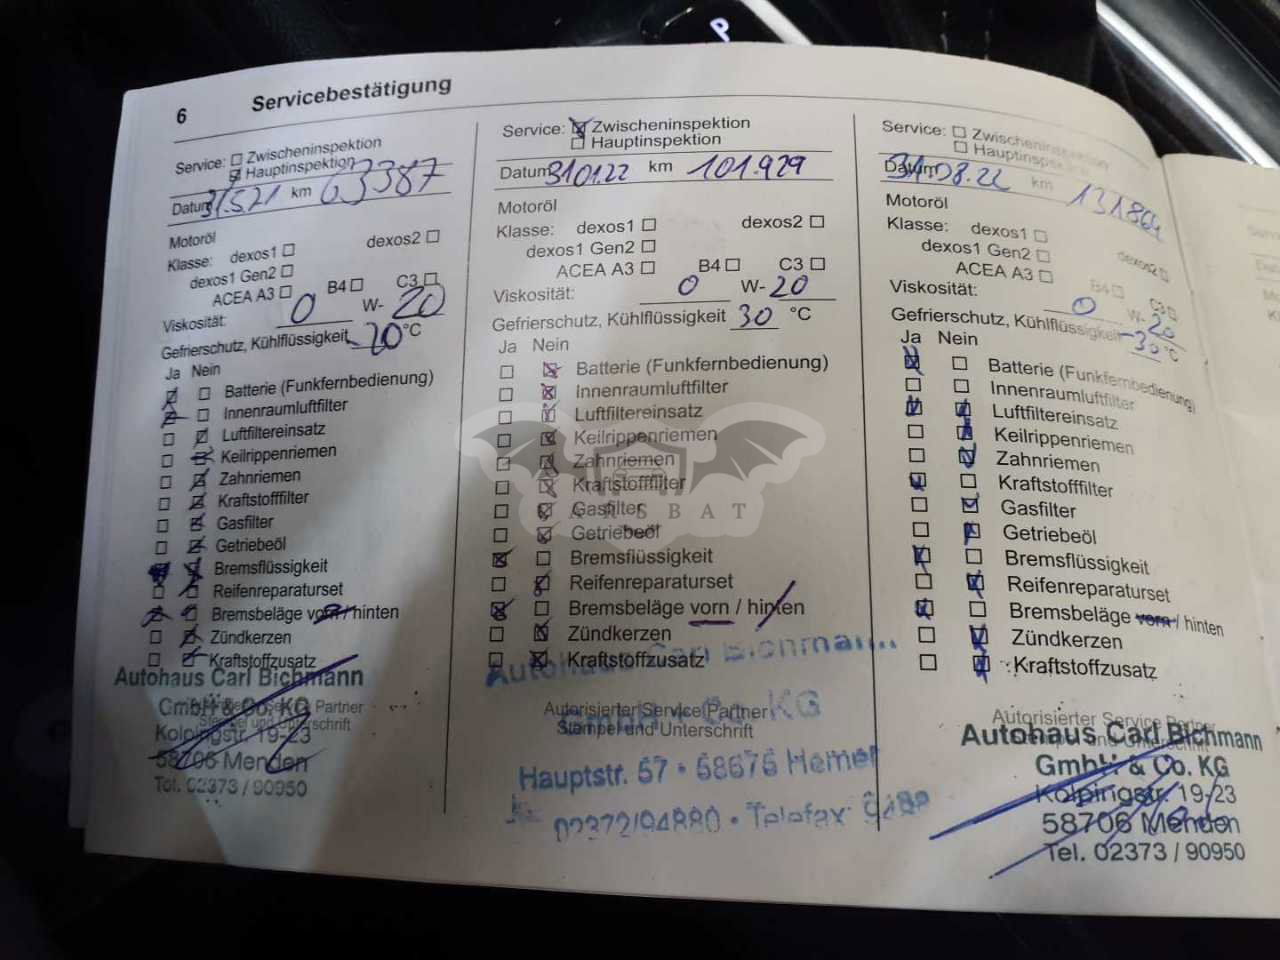 P
6 Servicebestätigung
Service: Zwischeninspektion
Hauptinspektion
Datum 31.5.21 km 63387
Motoröl
Klasse: dexos1 dexos2
dexos1 Gen2
ACEA A3 B4 C3
Viskosität: 0 W- 20
Gefrierschutz, Kühlflüssigkeit -20 °C
Ja Nein
Batterie (Funkfernbedienung)
Innenraumluftfilter
Luftfiltereinsatz
Keilrippenriemen
Zahnriemen
Kraftstofffilter
Gasfilter
Getriebeöl
Bremsflüssigkeit
Reifenreparaturset
Bremsbeläge vorn / hinten
Zündkerzen
Kraftstoffzusatz
Autohaus Carl Bichmann
GmbH & Co. KG
Partner
Stempel und Unterschrift
Kolpingstr. 19-23
58706 Menden
Tel. 02373 / 90950
Service: Zwischeninspektion
Hauptinspektion
Datum 31.01.22 km 101.929
Motoröl
Klasse: dexos1 dexos2
dexos1 Gen2
ACEA A3 B4 C3
Viskosität: 0 W- 20
Gefrierschutz, Kühlflüssigkeit 30 °C
Ja Nein
Batterie (Funkfernbedienung)
Innenraumluftfilter
Luftfiltereinsatz
Keilrippenriemen
Zahnriemen
Kraftstofffilter
Gasfilter
Getriebeöl
Bremsflüssigkeit
Reifenreparaturset
Bremsbeläge vorn / hinten
Zündkerzen
Kraftstoffzusatz
Autohaus Carl Bichmann
Autorisierter Service Partner
GmbH & Co. KG
Stempel und Unterschrift
Hauptstr. 57 • 58675 Hemer
02372/94880 • Telefax
CARSBAT
Service: Zwischeninspektion
Hauptinspektion
Datum 31.08.22 km 131864
Motoröl
Klasse: dexos1 dexos2
dexos1 Gen2
ACEA A3 B4 C3
Viskosität: 0 W- 20
Gefrierschutz, Kühlflüssigkeit -30 °C
Ja Nein
Batterie (Funkfernbedienung)
Innenraumluftfilter
Luftfiltereinsatz
Keilrippenriemen
Zahnriemen
Kraftstofffilter
Gasfilter
Getriebeöl
Bremsflüssigkeit
Reifenreparaturset
Bremsbeläge vorn / hinten
Zündkerzen
Kraftstoffzusatz
Autorisierter Service Partner
Autohaus Carl Bichmann
GmbH & Co. KG
Kolpingstr. 19-23
58706 Menden
Tel. 02373 / 90950